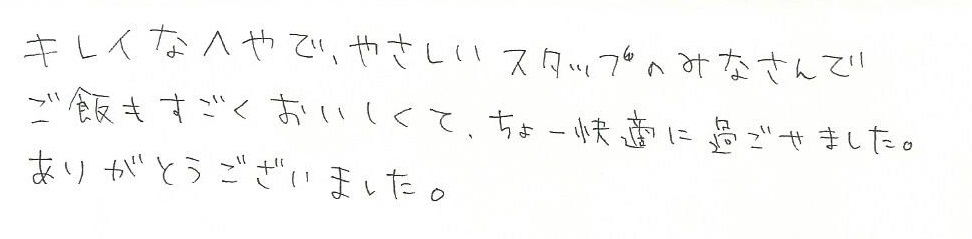 キレイなへやで、やさしいスタッフのみなさんで
ご飯もすごくおいしくて、ちょー快適に過ごせました。
ありがとうございました。